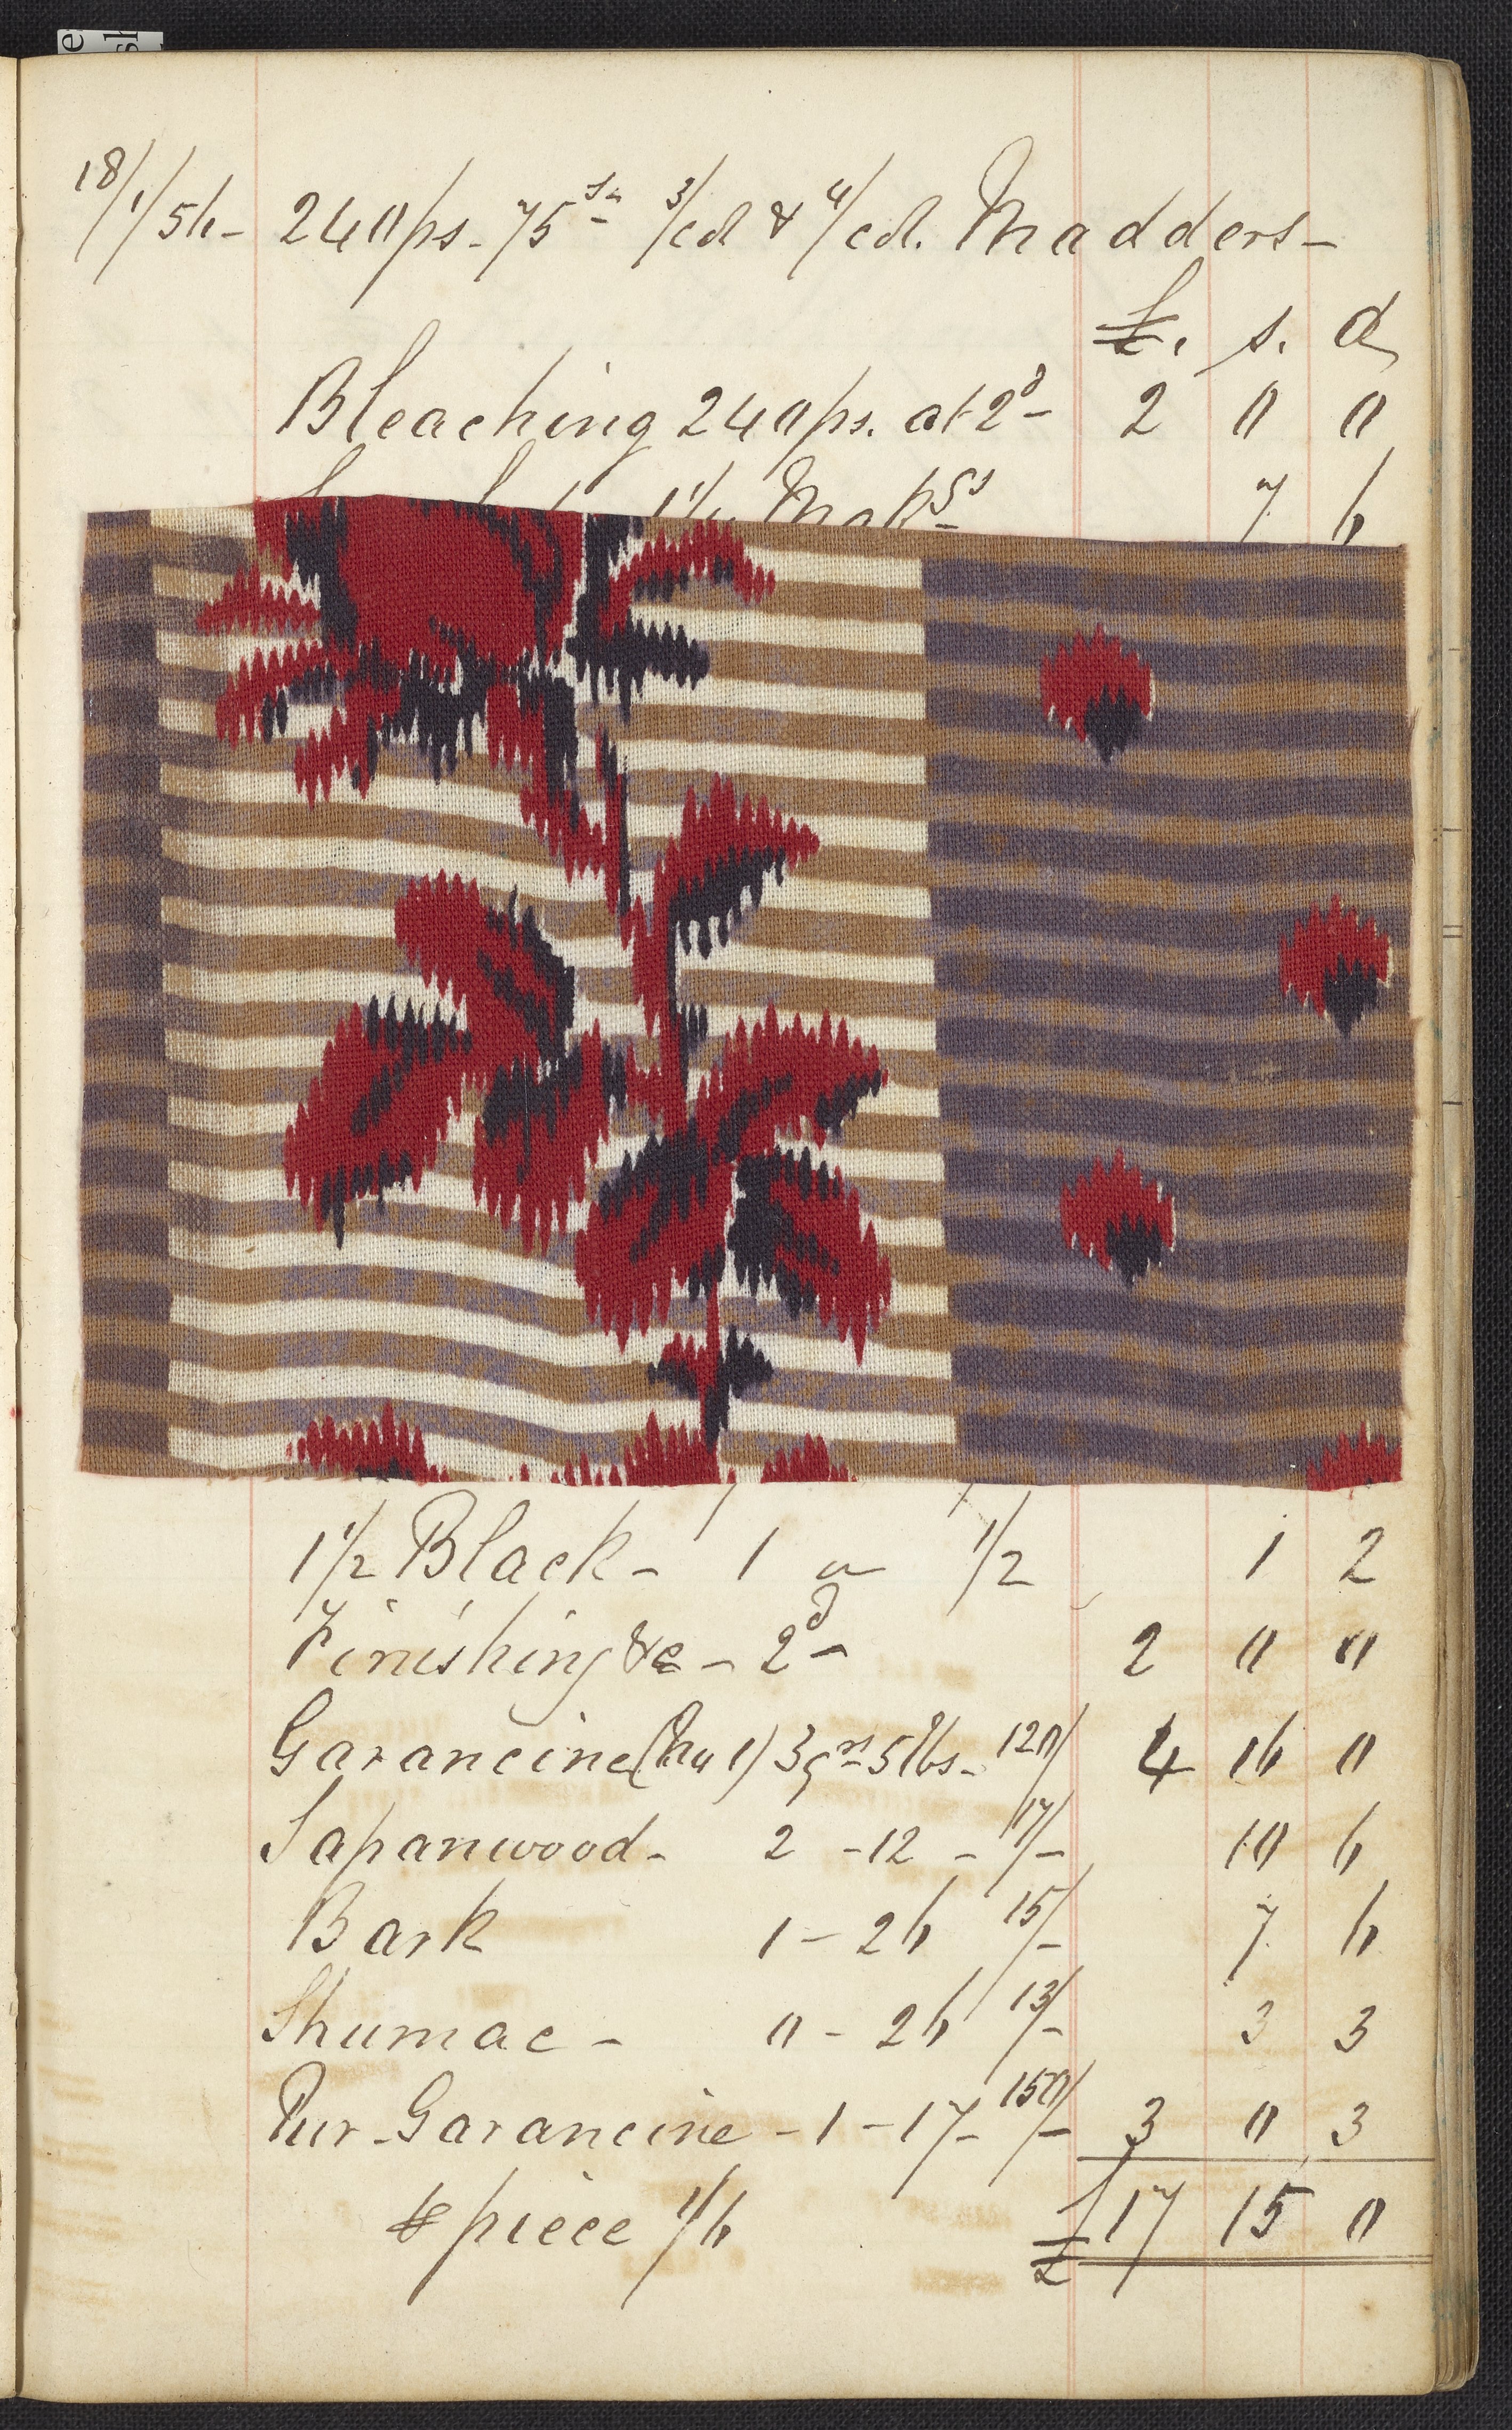 18/1/56 - 240 ps. 75s 3/cd & 4/cd. Madders -
£. s. d
Bleaching 240 ps. at 2d - 2 0 0
7 6
1 1/2 Black - 1 " 1/2 1 2
Finishing &c - 2d - 2 0 0
Garancine (Pur 1) 3 qrs 5 lbs - 120/ 4 16 0
Sapanwood - 2 - 12 - 17/- 10 6
Bark 1 - 26 15/- 7 6
Shumac - 0 - 26 13/- 3 3
Pur. Garancine - 1 - 17 - 150/- 3 0 3
£ 17 15 0
piece 1/6